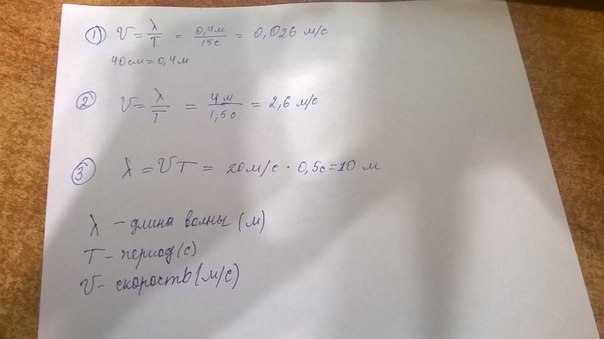 ① V = λ/T = 0,4м/15с = 0,026 м/с
40см = 0,4м
② V = λ/T = 4м/1,5с = 2,6 м/с
③ λ = VT = 20м/с · 0,5с = 10 м
λ – длина волны (м)
T – период (с)
V – скорость (м/с)